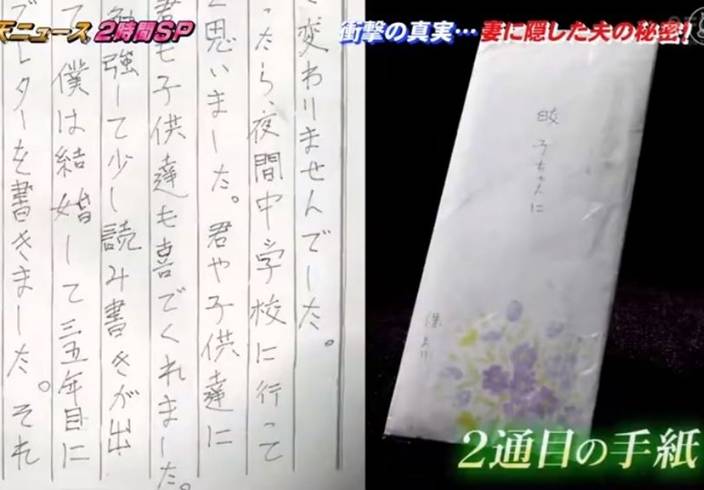 天ニュース2時間SP
衝撃の真実…妻に隠した夫の秘密!
変わりませんでした。
ったら、夜間中学校に行って
思いました。君や子供達に
も子供達も喜でくれました。
勉強して少し読み書きが出
て、僕は結婚して三五年目に
ブレターを書きました。それ
皎子ちゃんに
保より
2通目の手紙